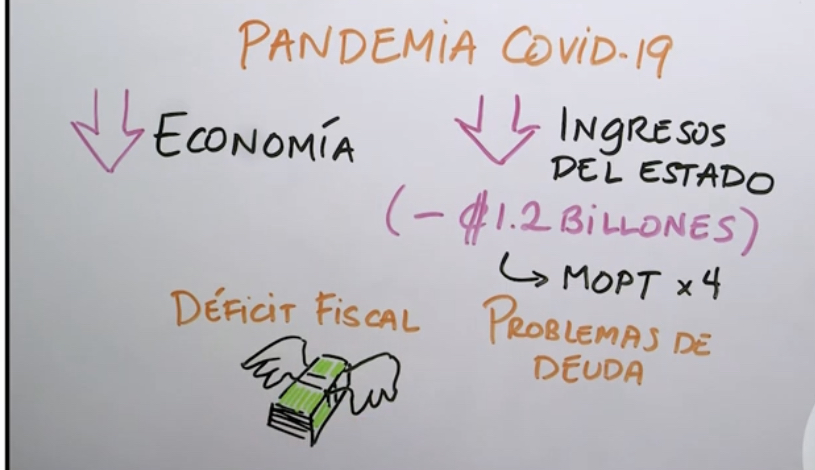 PANDEMIA COVID-19
ECONOMÍA
INGRESOS
DEL ESTADO
(- ₡1.2 BILLONES)
MOPT x4
DÉFICIT FISCAL
PROBLEMAS DE
DEUDA